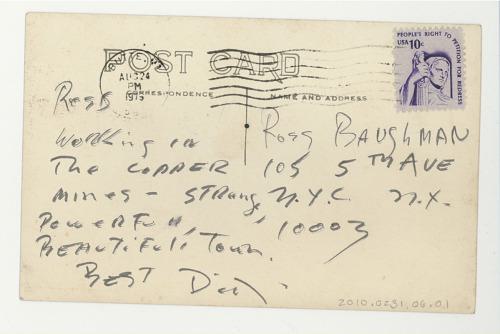 POST CARD
BUTTE, MT
AUG 24
PM
1979
CORRESPONDENCE
NAME AND ADDRESS
PEOPLE'S RIGHT TO PETITION FOR REDRESS
USA 10c
Ross
Working in
The COPPER
mines - STRANGE,
POWERFUL,
BEAUTIFUL Town.
BEST
Ross BAUGHMAN
105 5TH AVE
N.Y.C. N.Y.
10003
2010.0231.06.01